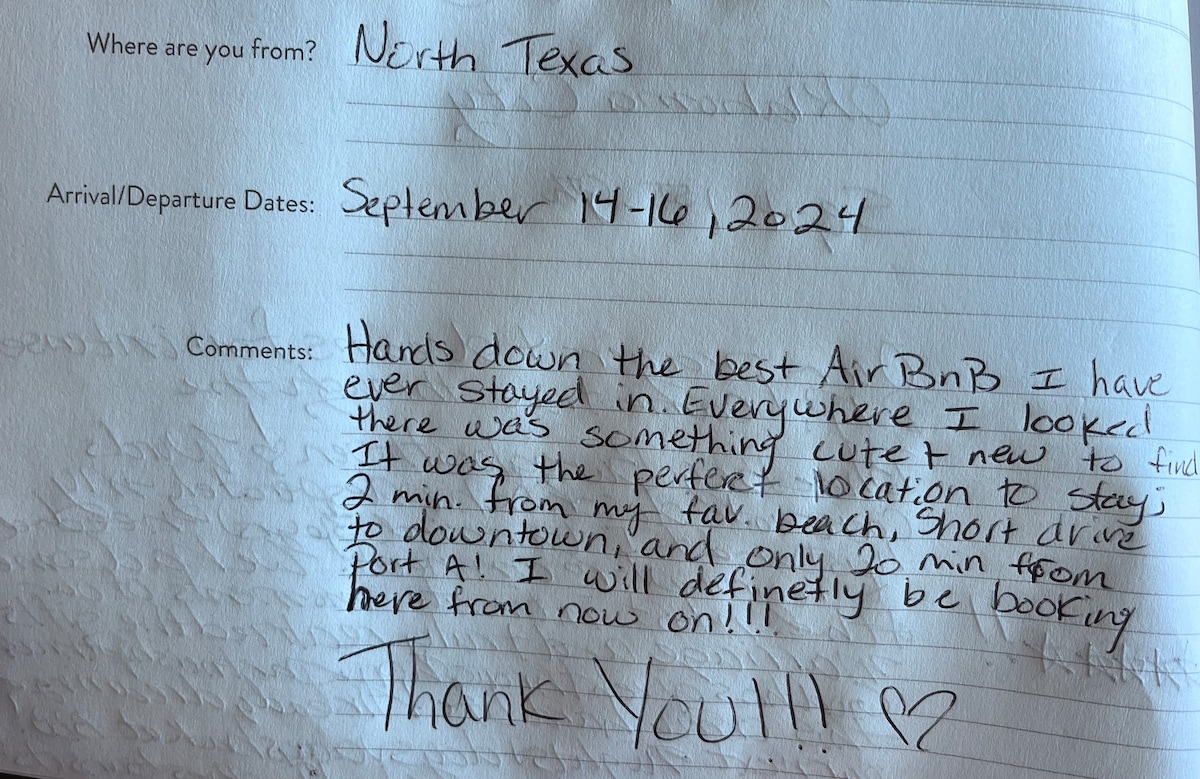 Where are you from? North Texas
Arrival/Departure Dates: September 14-16, 2024
Comments: Hands down the best Air BnB I have
ever stayed in. Everywhere I looked
there was something cute + new to find
It was the perfect location to stay;
2 min. from my fav. beach, short drive
to downtown, and only 20 min from
Port A! I will definetly be booking
here from now on!!!
Thank You!!! ♡